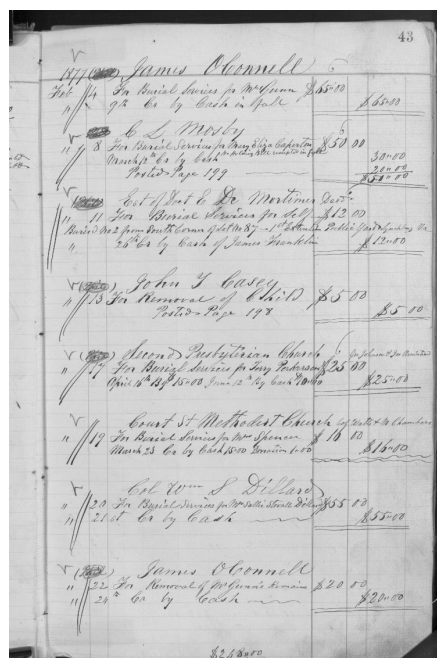 43
1877 James OConnell
Feb 4 For Burial Services for Mr Gunn $65.00
" 9th Cr by Cash in full $65.00
C L Mosby
" 8 For Burial Services for Mrs Eliza Caperton $50 00
March 9th Cr by Cash 30.00
Posted Page 199 20.00
$50.00
Est of Doct E De Mortimer Decd
" 11 For Burial Services for Self $12 00
Buried No 2 from South Corner of Lot No 87 1st Extention Public Yard Lynchburg Va
" 26th Cr by Cash of James Franklin $12.00
John T Casey
" 13 For Removal of Child $5 00
Posted Page 198 $5.00
Second Presbyterian Church
" 17 For Burial Services for Terry $25 00
April 16th By 15.00 June 12th By Cash 10.00 $25.00
Court St Methodist Church by Watts & Chambers
" 19 For Burial Services for Mrs Spencer $16 00
March 23 Cr by Cash 15.00 Donation 1.00 $16.00
Col Wm S Dillard
" 20 For Burial Services for Mrs Sallie Dillard $55 00
" 21st Cr by Cash $55.00
James OConnell
" 22 For Removal of Mr Gunn's Remains $20 00
" 24th Cr by Cash $20.00
$248.00